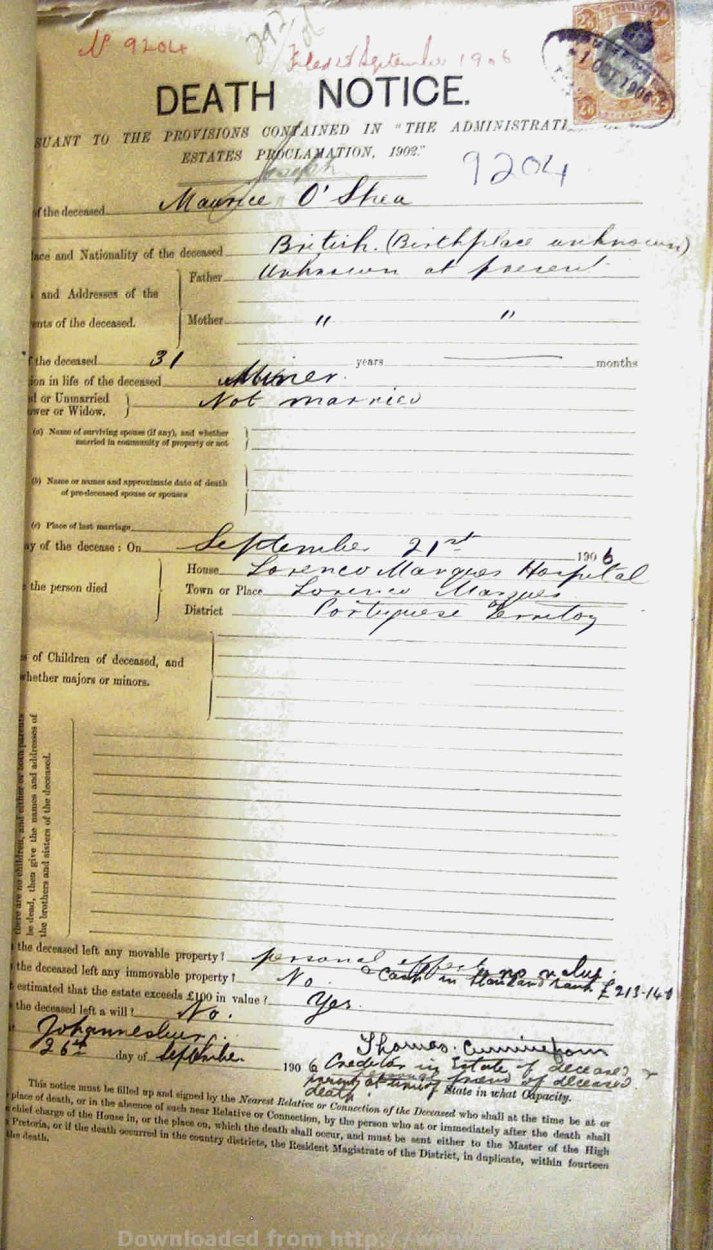 No 9204
Filed 28 September 1906
DEATH NOTICE.
SUANT TO THE PROVISIONS CONTAINED IN "THE ADMINISTRATI
ESTATES PROCLAMATION, 1902."
9204
Joseph
of the deceased Maurice O'Shea
lace and Nationality of the deceased British. (Birthplace unknown)
and Addresses of the
ents of the deceased.
Father Unknown at present
Mother " "
f the deceased 31 years months
ion in life of the deceased Miner.
d or Unmarried
ower or Widow.
Not married
(a) Name of surviving spouse (if any), and whether
married in community of property or not
(b) Name or names and approximate date of death
of pre-deceased spouse or spouses
(c) Place of last marriage
ay of the decease: On September 21st 1906
the person died
House Lorenco Marques Hospital
Town or Place Lorenco Marques
District Portuguese Territory
s of Children of deceased, and
whether majors or minors.
there are no children, and either or both parents
be dead, then give the names and addresses of
the brothers and sisters of the deceased.
the deceased left any movable property? personal effects no value.
the deceased left any immovable property? No. Cash in Standard Bank £213-14-
estimated that the estate exceeds £100 in value? Yes.
the deceased left a will? No.
Johannesburg
26th day of September 1906
Thomas Cunningham
Creditor in Estate of deceased &
friend of deceased
present at time of
death.
State in what Capacity.
This notice must be filled up and signed by the Nearest Relative or Connection of the Deceased who shall at the time be at or
place of death, or in the absence of such near Relative or Connection, by the person who at or immediately after the death shall
chief charge of the House in, or the place on, which the death shall occur, and must be sent either to the Master of the High
Pretoria, or if the death occurred in the country districts, the Resident Magistrate of the District, in duplicate, within fourteen
the death.
Downloaded from http://www.